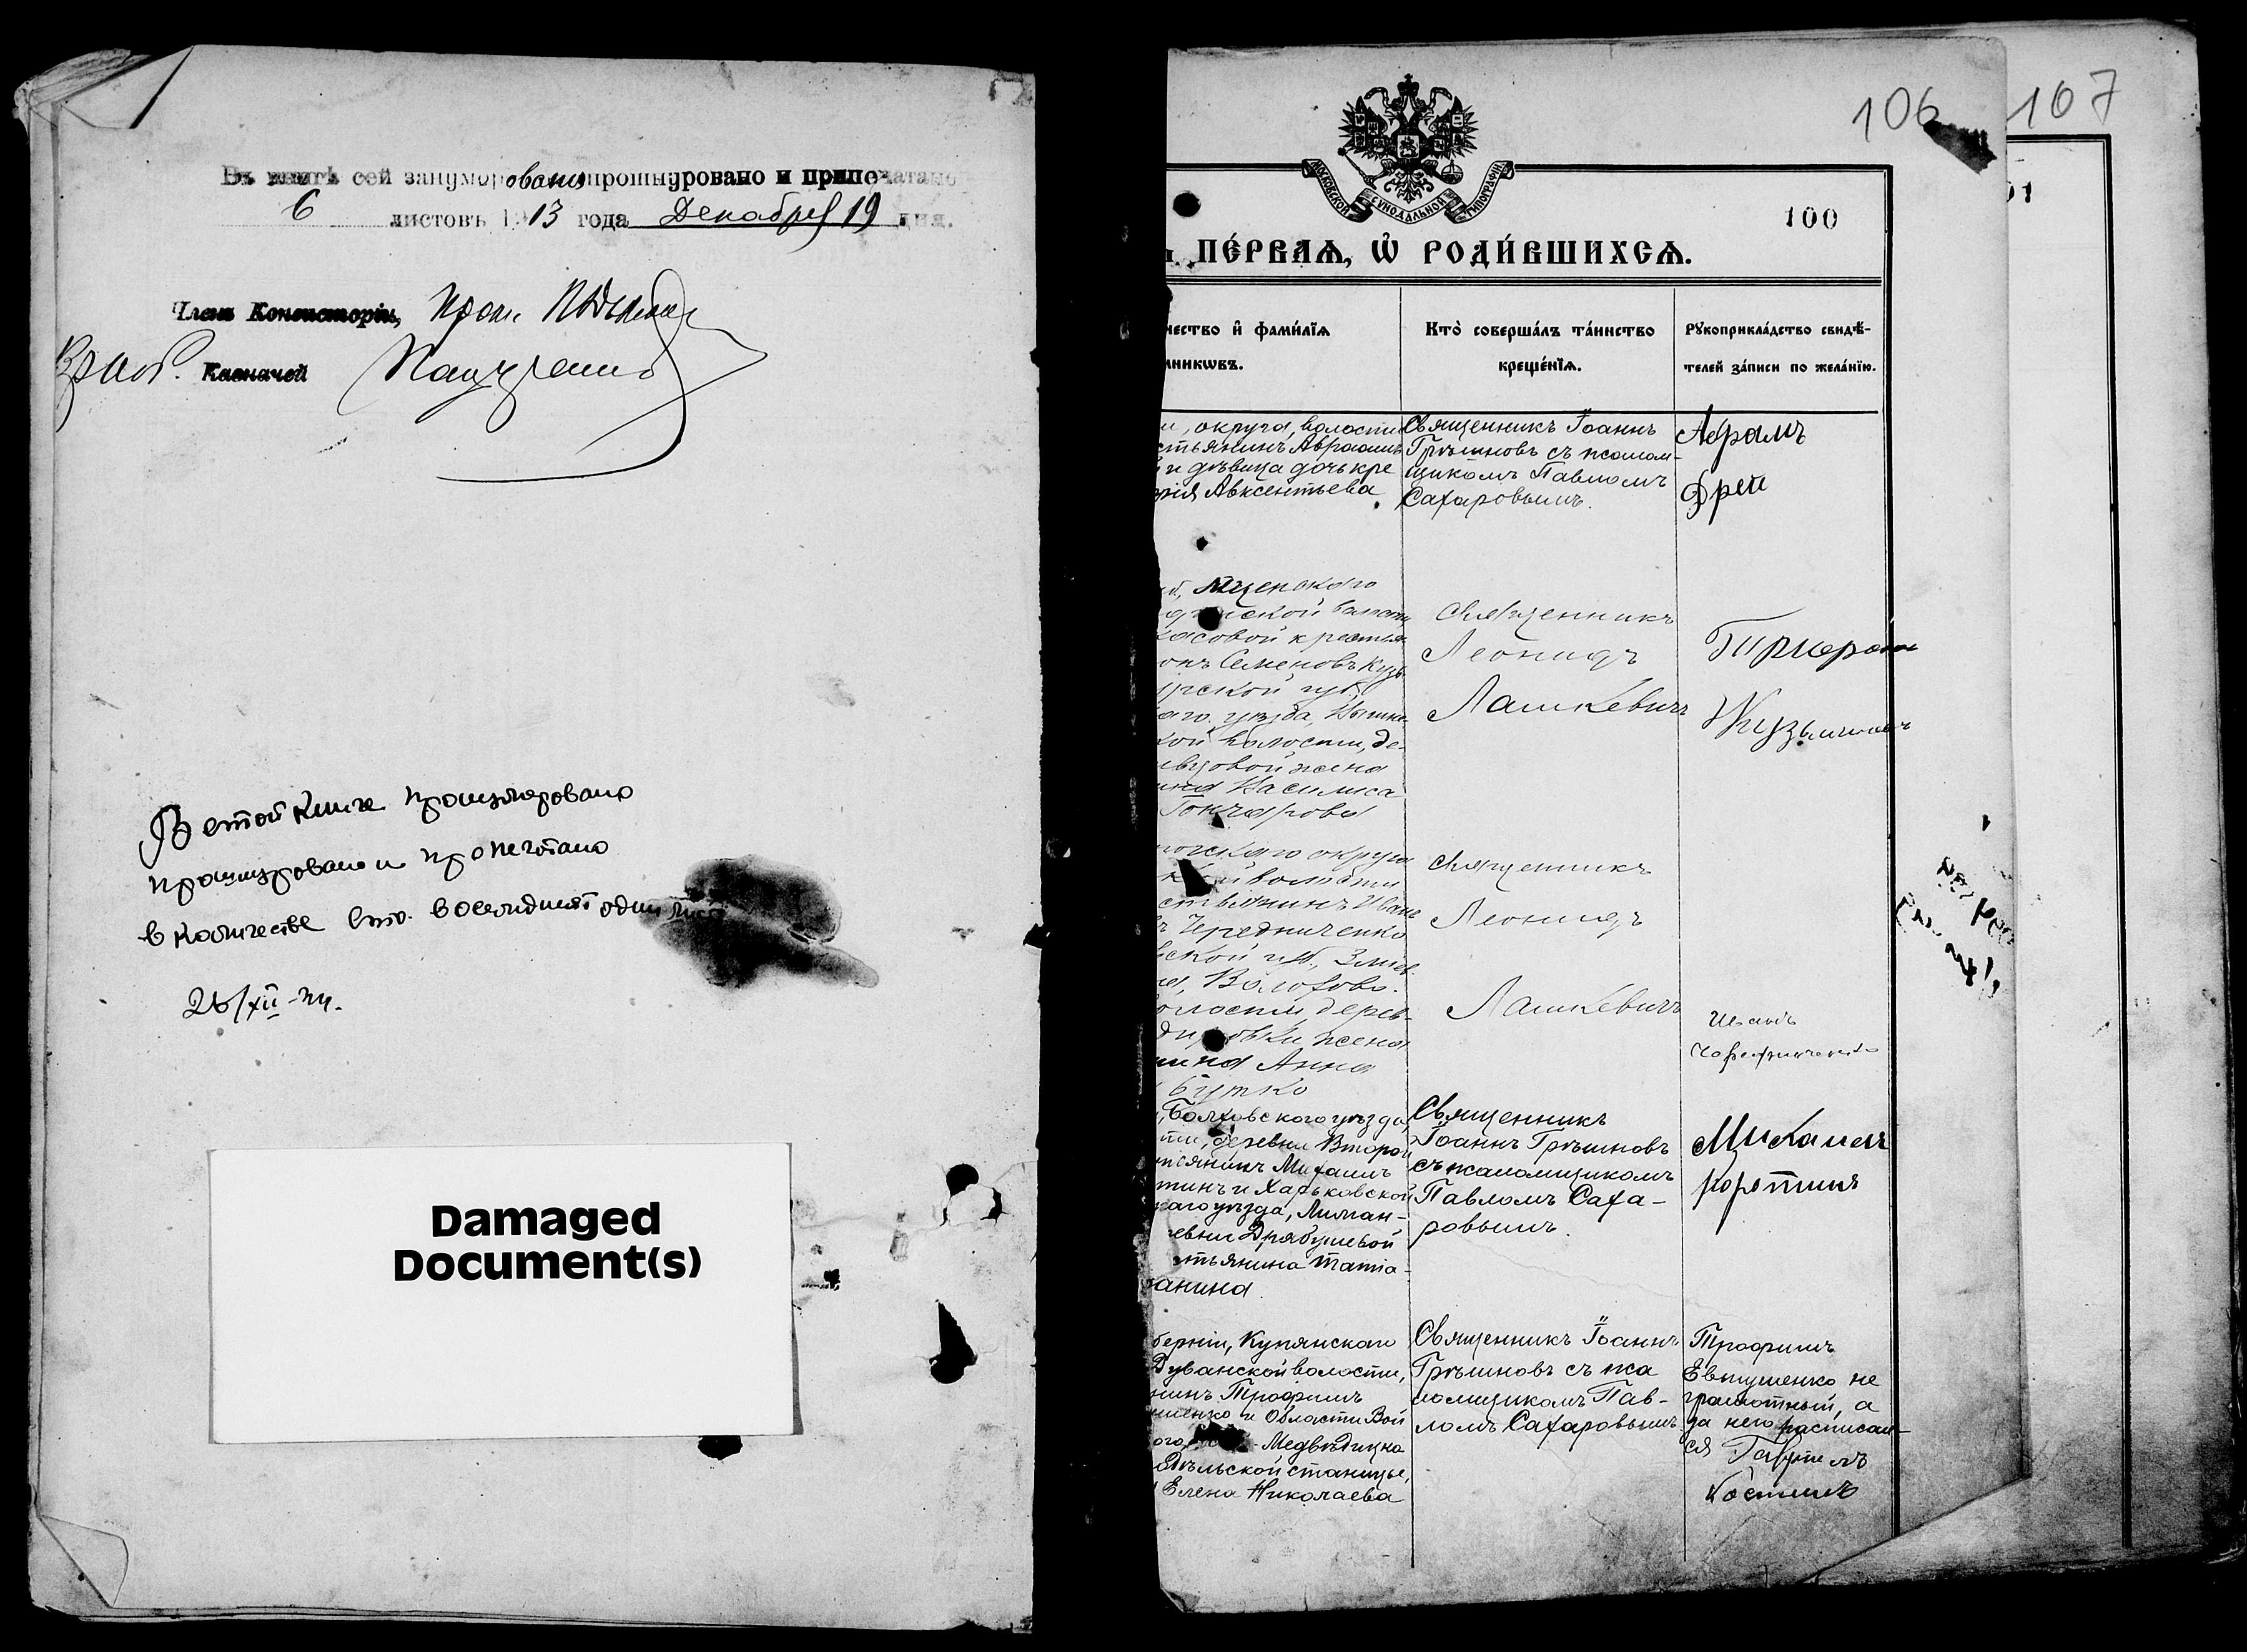 Въ книгѣ сей занумеровано прошнуровано и припечатано
6 листовъ 1913 года Декабря 19 дня.
Членъ Консисторіи, Прот.
Казначей
В этой книге пронумеровано
прошнуровано и пропечатано
в количестве сто восемдисят один лист
Damaged
Document(s)
106
107
МОСКОВСКОЙ СѴНОДАЛЬНОЙ ТИПОГРАФІИ
100
ПЕ́РВАѦ, Ѡ҆ РОДИ́ВШИХСѦ.
чество и҆ фами́лїѧ
мникѡвъ.
Кто̀ соверша́лъ та́инство
креще́нїѧ.
Рꙋкоприкла́дство свидѣ́-
телей за́писи по жела́нїю.
и, округа, волости
стьянинъ Авраамъ
и дѣвица дочь кре
рія Авксентьева
Священникъ Іоаннъ
Грѣшновъ съ псалом-
щикомъ Павломъ
Сахаровымъ.
Абрамъ
Фрей
Мценского
ской валости
касовой крестьян
онъ Семеновъ Кузь
рской губ,
аго уѣзда,
кой волости, де-
евцовой жена
ина Василиса
Гончарова
Священникъ
Леонидъ
Лашкевичъ
Григорий
Кузьмичовъ
рогскаго округа
кой волости
стьянинъ Иванъ
ъ Чередниченко
вской губ., Зміев.
да, Волохово-
олости дерев-
жена
нина Анна
Бутко
Священникъ
Леонидъ
Лашкевичъ
Иванъ
Чередниченко
Болховского уѣзда,
сти, деревни Второй
стьянинъ Михаилъ
тинъ и Харьковской
каго уѣзда, Лиман-
ревни Дрябушевой
стьянина Татіа-
анина.
Священникъ
Іоаннъ Грѣшновъ
съ псаломщикомъ
Павломъ Саха-
ровымъ.
Михаилъ
Коротинъ
берніи, Купянскаго
Дуванской волости,
нинъ Трофимъ
шенко и Области Вой
ого Медвѣдицка
дѣльской станицы,
Елена Николаева
Священникъ Іоаннъ
Грѣшновъ съ пса
ломщикомъ Пав-
ломъ Сахаровымъ
Трофимъ
Евтушенко не
грамотный, а
за него расписал-
ся Гавриилъ
Костинъ